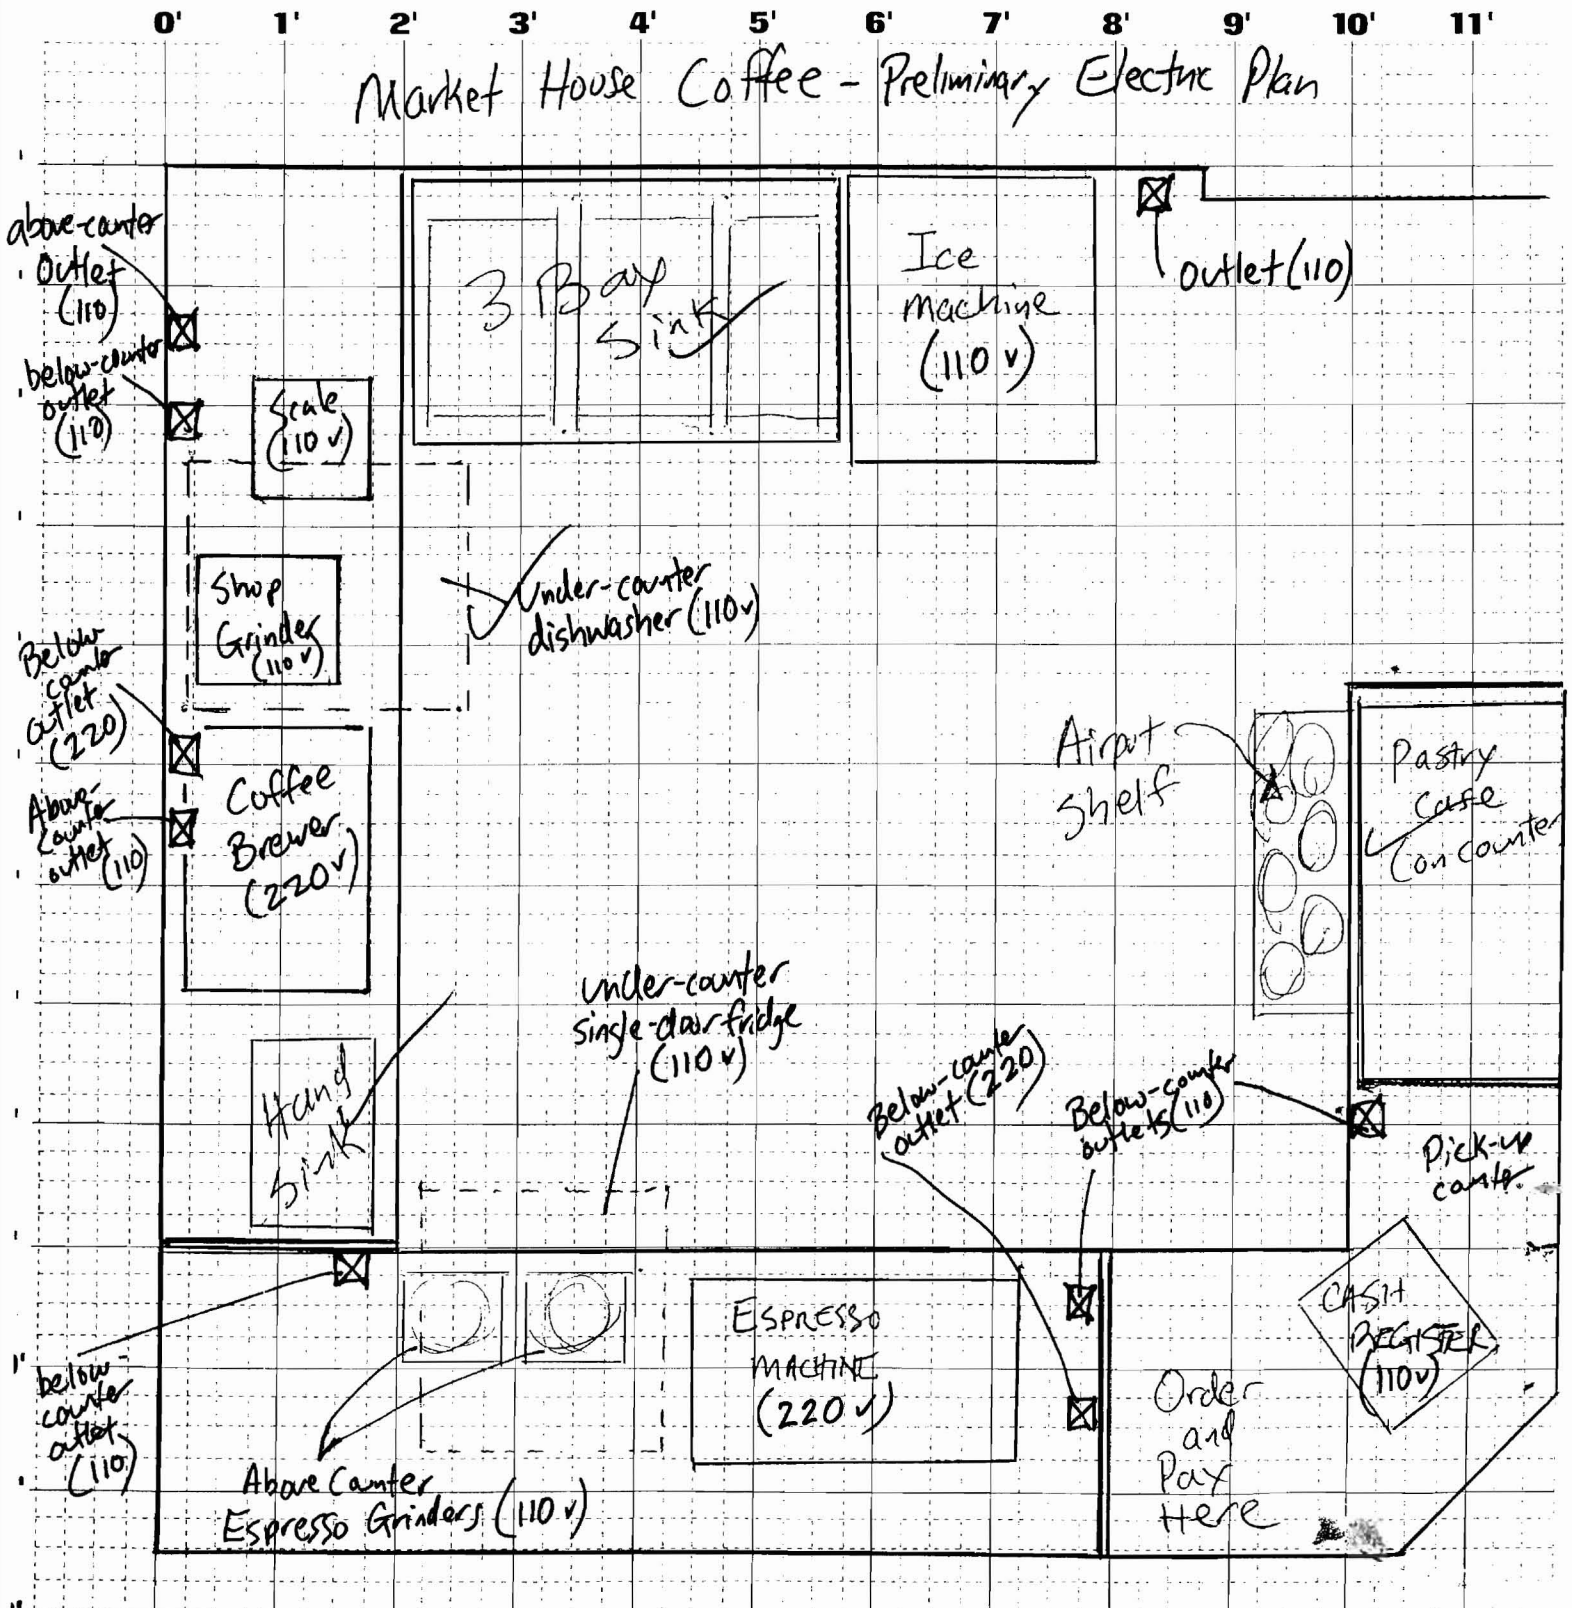 0' 1' 2' 3' 4' 5' 6' 7' 8' 9' 10' 11'
Market House Coffee - Preliminary Electric Plan
above-counter
Outlet
(110)
below-counter
outlet
(110)
3 Bay
Sink
Ice
Machine
(110 v)
outlet (110)
Scale
(110 v)
Shop
Grinder
(110 v)
Under-counter
dishwasher (110 v)
Below
counter
outlet
(220)
Above-
counter
outlet
(110)
Coffee
Brewer
(220 v)
Airpot
Shelf
Pastry
Case
(on counter
Hand
Sink
under-counter
single-door fridge
(110 v)
Below-counter
outlet (220)
Below-counter
outlets (110)
Pick-up
counter.
below-
counter
outlet
(110)
ESPRESSO
MACHINE
(220 v)
CASH
REGISTER
(110v)
Order
and
Pay
Here
Above Counter
Espresso Grinders (110 v)